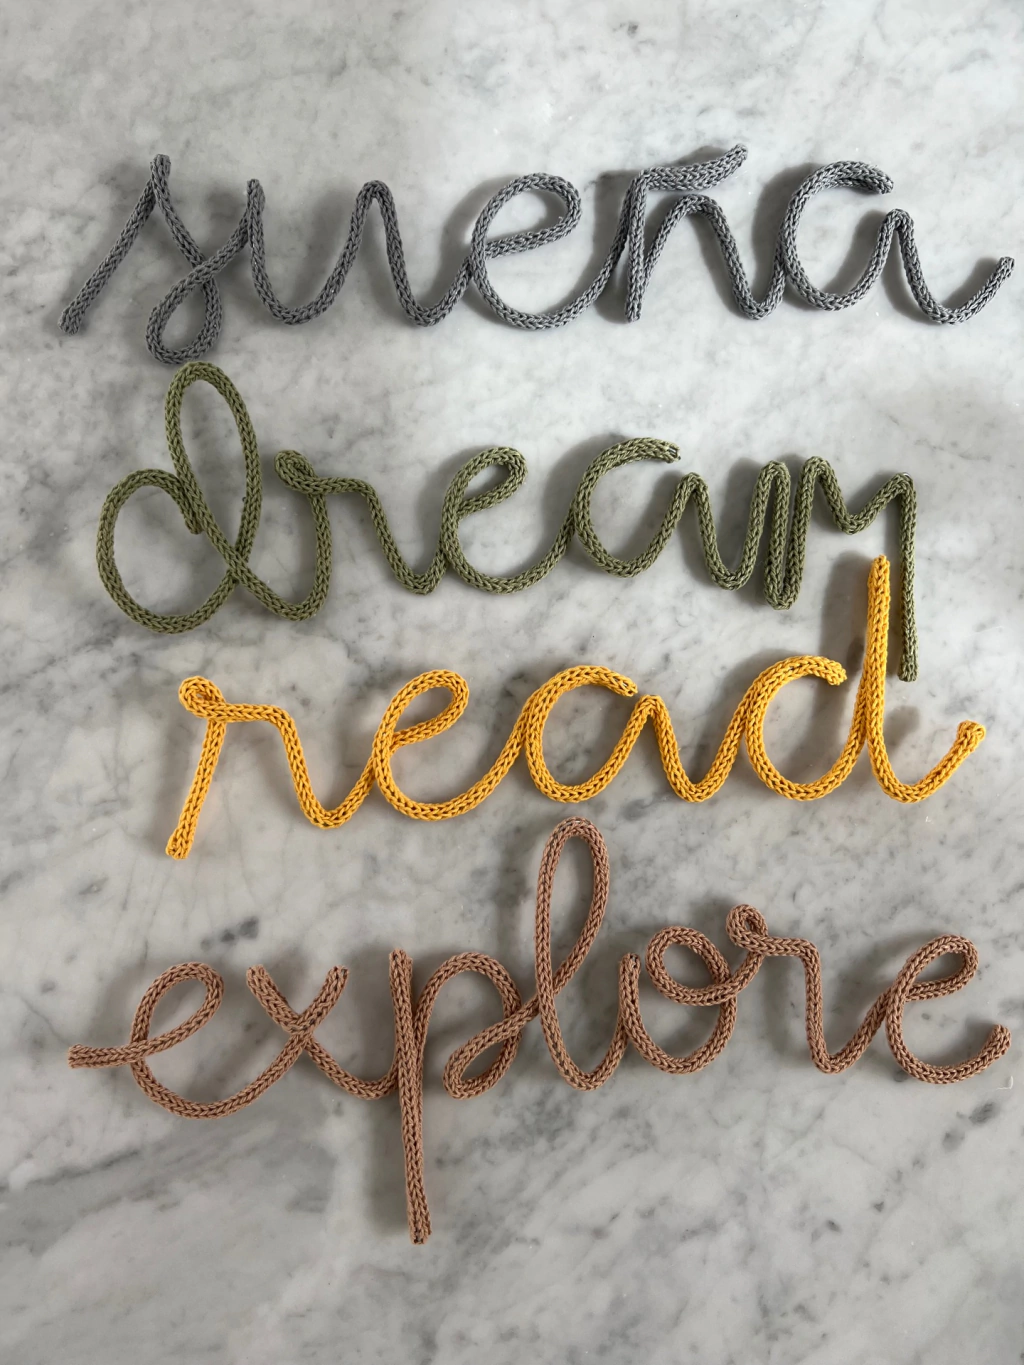 sueña
dream
read
explore